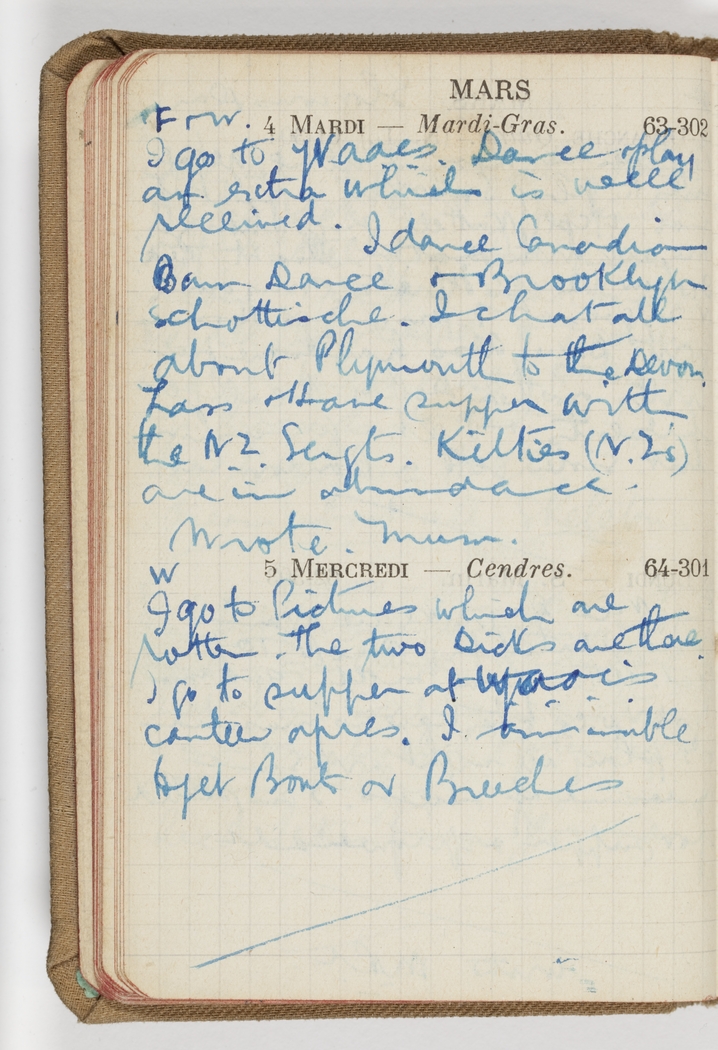 MARS
F or W. 4 MARDI — Mardi-Gras. 63-302
I go to Waacs. Dance & play
an extra which is well
received.
I dance Canadian
Barn Dance & Brooklyn
Schottische. I chat all
about Plymouth to the Devon
Lass & Have supper with
the N.Z. Sergts. Kilties (N.Zs)
are in abundance.
Wrote. Mum.
5 MERCREDI — Cendres. 64-301
W
I go to Pictures which are
rotten. The two Dicks are there.
I go to supper at
canteen apres. I am unable
to get Boots or Breeches